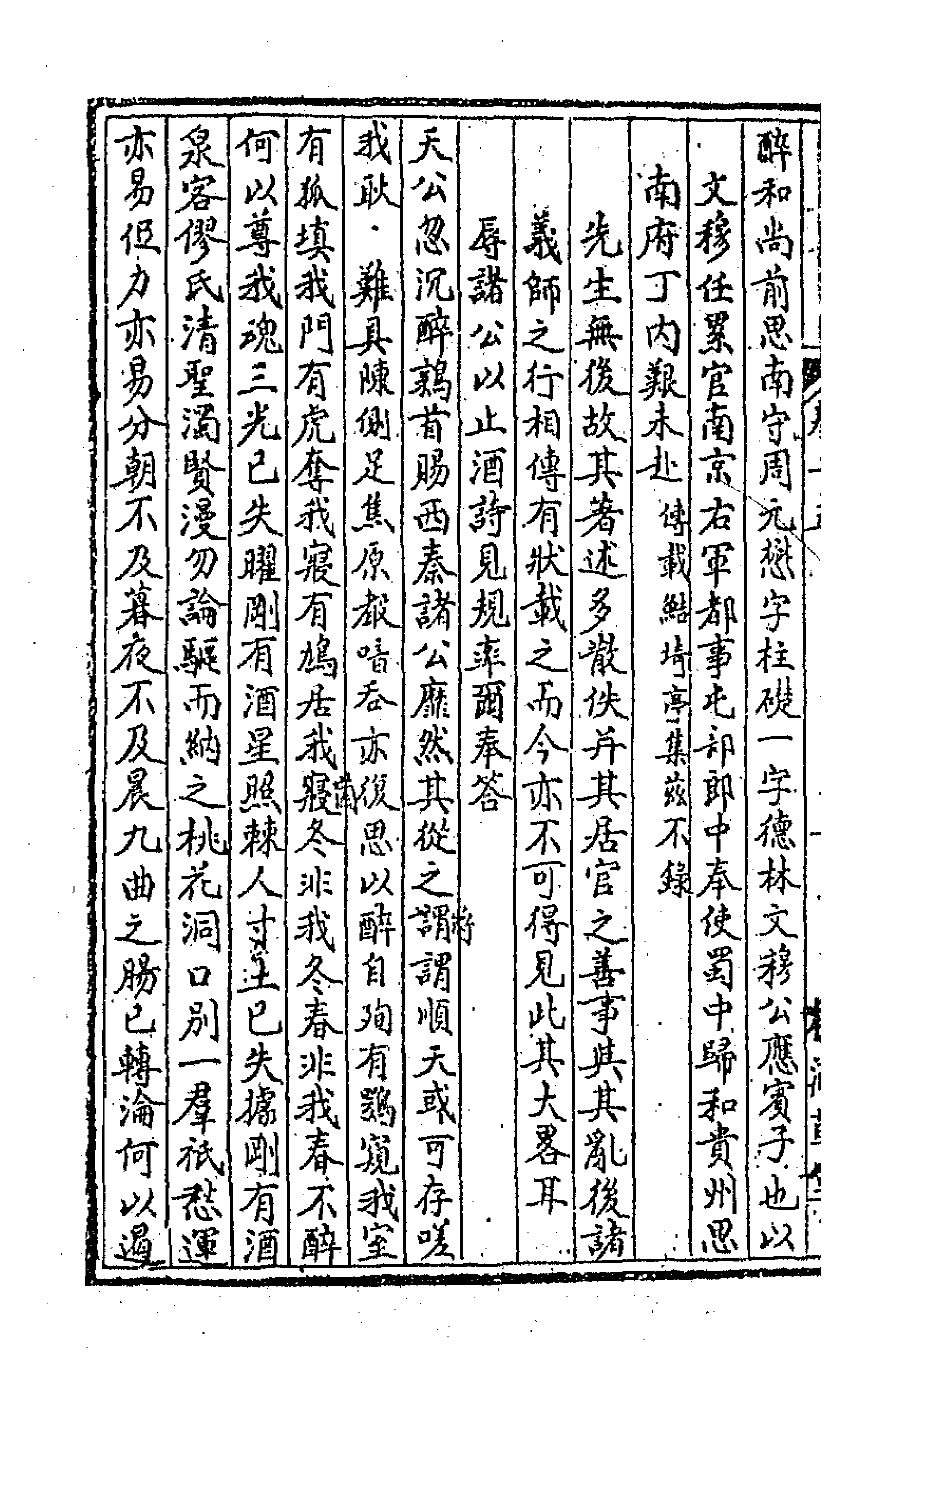 醉和尚前思南守周元懋字柱礎一字德林文穆公應賓子也以
文穆任累官南京右軍都事屯部郎中奉使蜀中歸和貴州思
南府丁內艱未赴傳載鮚埼亭集茲不錄
先生無後故其著述多散佚并其居官之善事與其亂後諸
義師之行相傳有狀載之而今亦不可得見此其大畧耳
辱諸公以止酒詩見規率爾奉答
天公忽沉醉鶉首賜西秦諸公靡然其從之謂將謂順天或可存嗟
我耿難具陳側足焦原赧唶吞亦復思以醉自殉有鴞窺我室
有狐填我門有虎奪我寢有鳩居我寢菌冬非我冬春非我春不醉
何以尊我魂三光已失曜剛有酒星照棘人寸土已失據剛有酒
泉客僇氏清聖濁賢漫勿論驅而納之桃花洞口別一羣祇愁運
亦易但力亦易分朝不及暮夜不及晨九曲之腸已轉淪何以遏